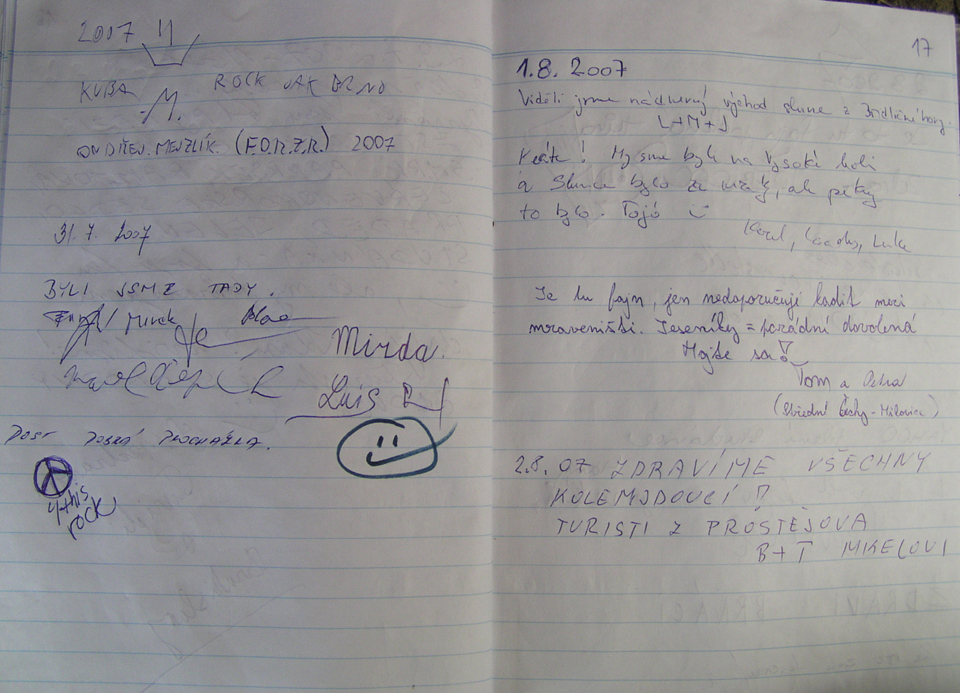 2007
KUBA ROCK JAK BRNO
M.
ONDŘEJ MEJZLÍK (F.O.R.Z.R.) 2007
31.7. 2007
BYLI JSME TADY.
Mirek
Mirda
Luis
DOST DOBRÁ PROCHÁZKA.
4 this
rock
17
1.8. 2007
Viděli jsme nádherný východ slunce z
L+M+J
! My sme byli na Vysoké holi
a Slunce bylo za mraky, ale pěkný
to bylo.
Karel, Luk
Je tu fajn, jen nedoporučuji kadit mezi
mraveništi. Jeseníky = pořádní dovolená
Mějte sa!
Tom a Petra
(Střední Čechy - Milovice)
2.8. 07 ZDRAVÍME VŠECHNY
KOLEMJDOUCÍ!
TURISTI Z PROSTĚJOVA
B+T MIKELOVI